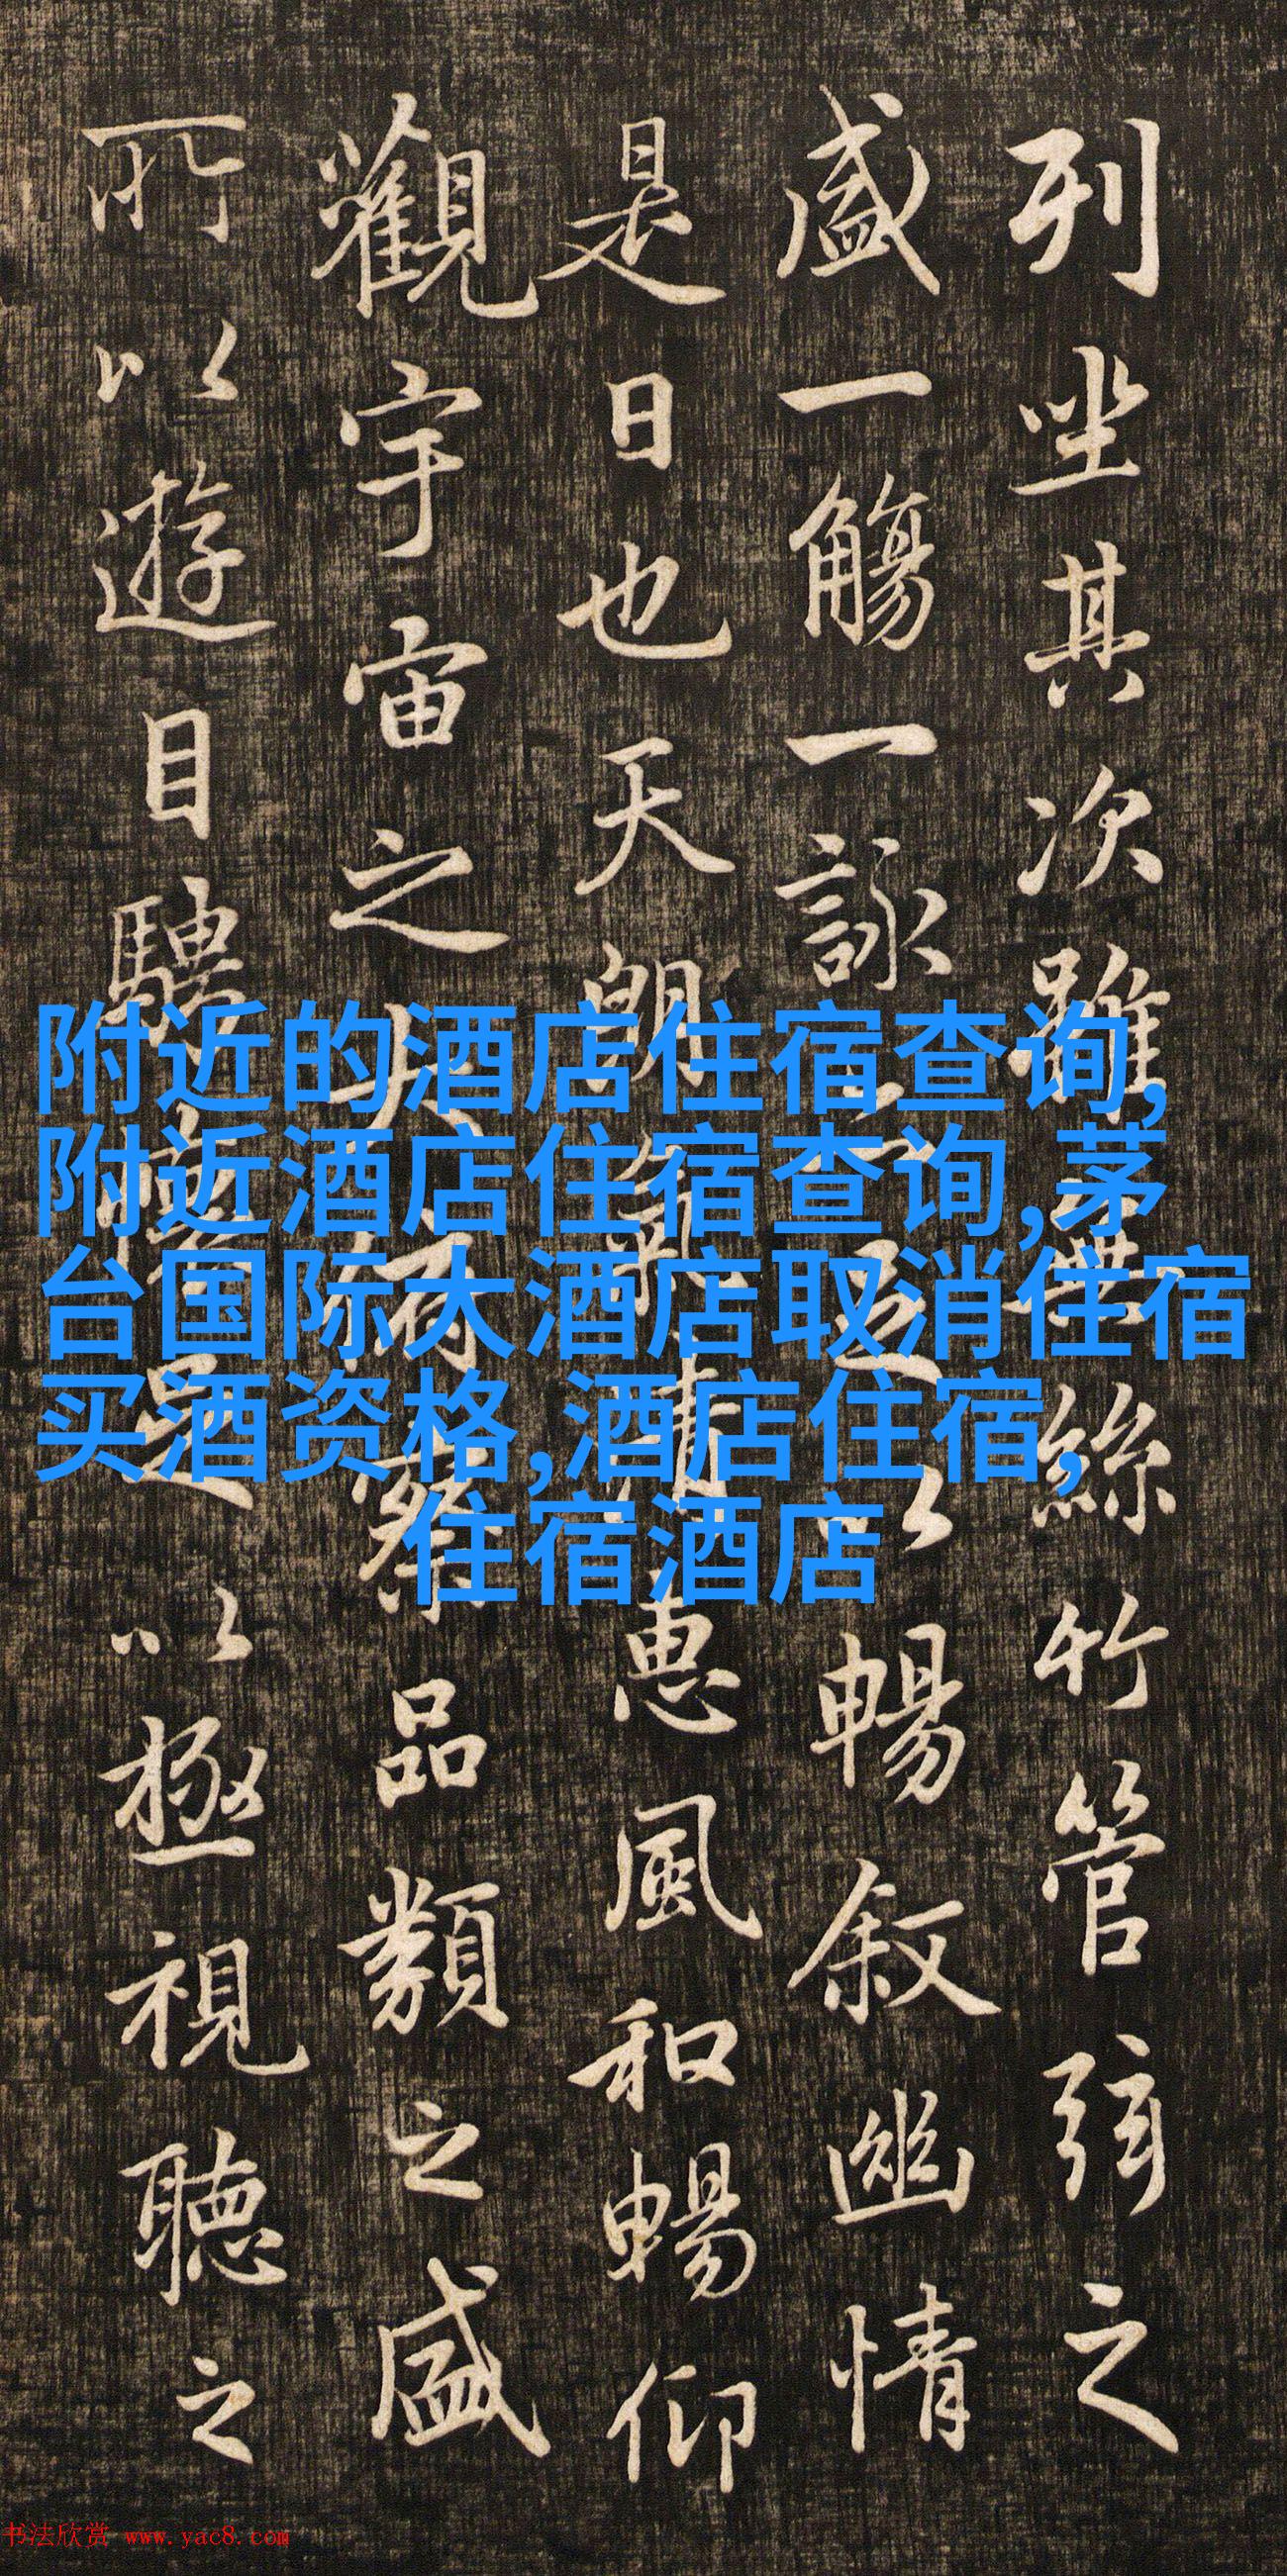 列坐其次雖無絲竹管弦之
盛一觴一詠亦足以暢叙幽情
是日也天朗氣清惠風和暢仰
觀宇宙之大俯察品類之盛
所以遊目騁懷足以極視聽之
附近的酒店住宿查询,
附近酒店住宿查询,茅
台国际大酒店取消住宿
买酒资格,酒店住宿,
住宿酒店
书法欣赏 www.yac8.com